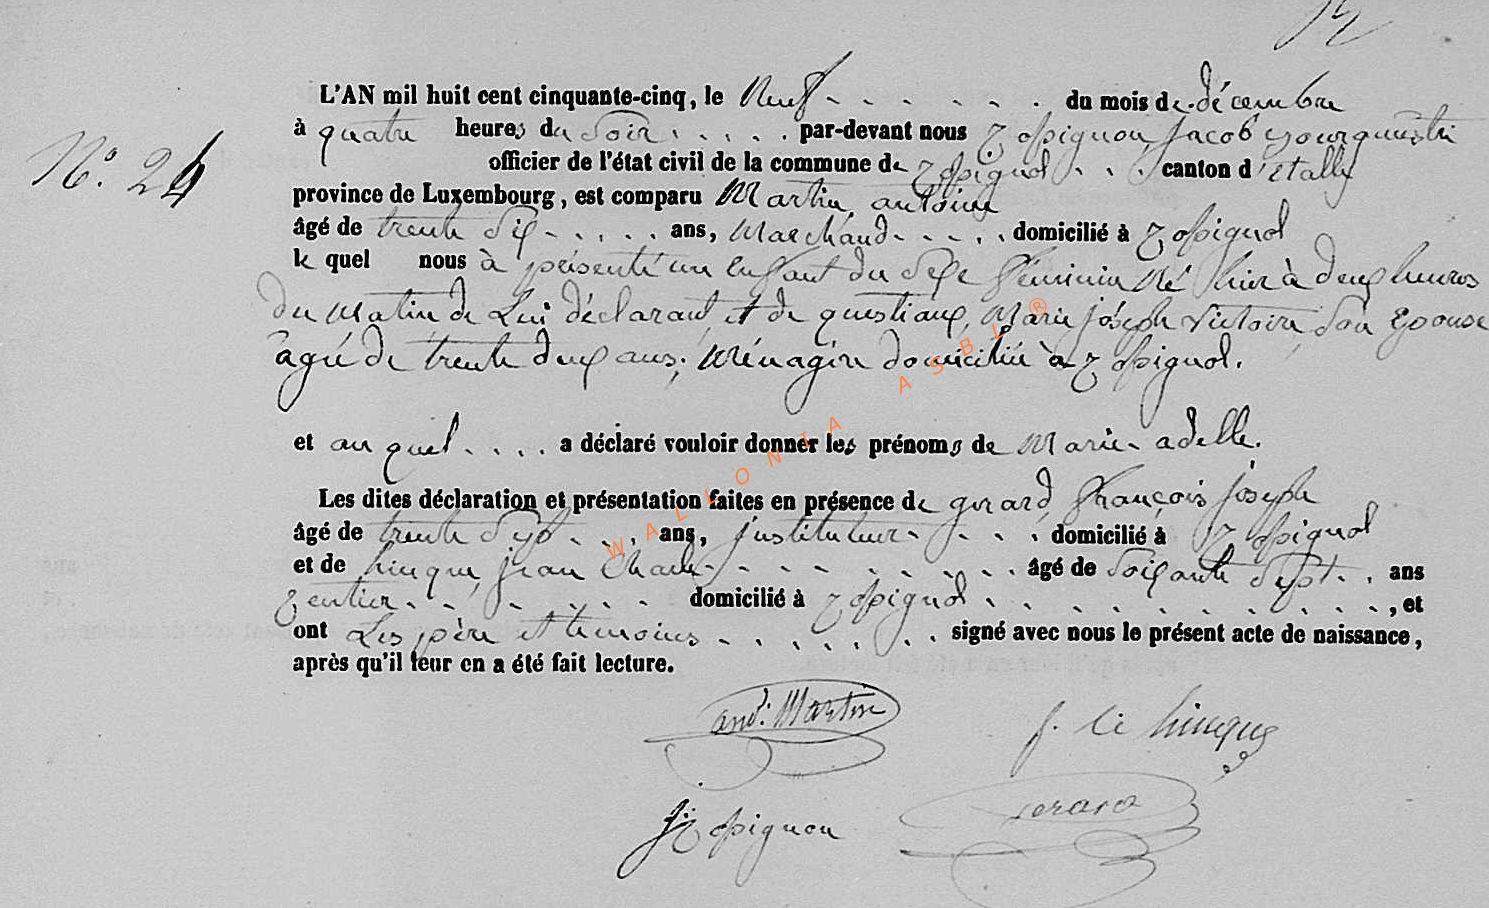 12
L'AN mil huit cent cinquante-cinq, le Neuf du mois de décembre
à quatre heures du Soir par-devant nous Rossignon, Jacob Bourgmestre
N° 24
officier de l'état civil de la commune de Rossignol canton d'étalle
province de Luxembourg, est comparu Martin, antoine
âgé de trente Six ans, Marchand domicilié à Rossignol
le quel nous à présenté un Enfant du Sexe féminin Né hier à deux heures
du Matin de Lui déclarant et de questiaux, Marie joséph Victoire Son Epouse
âgé de trente deux ans, Ménagère domiciliée à Rossignol.
et au quel a déclaré vouloir donner les prénoms de Marie adelle.
Les dites déclaration et présentation faites en présence de gerard françois joseph
âgé de trente Sept ans, justituteur domicilié à Rossignol
et de hinque, jean Charle âgé de Soixante Sept ans
Rentier domicilié à Rossignol, et
ont Les père et temoins signé avec nous le présent acte de naissance,
après qu'il leur en a été fait lecture.
ant. Martin
hinque
J Rossignon
Gerard
WALLONIA ASBL ®